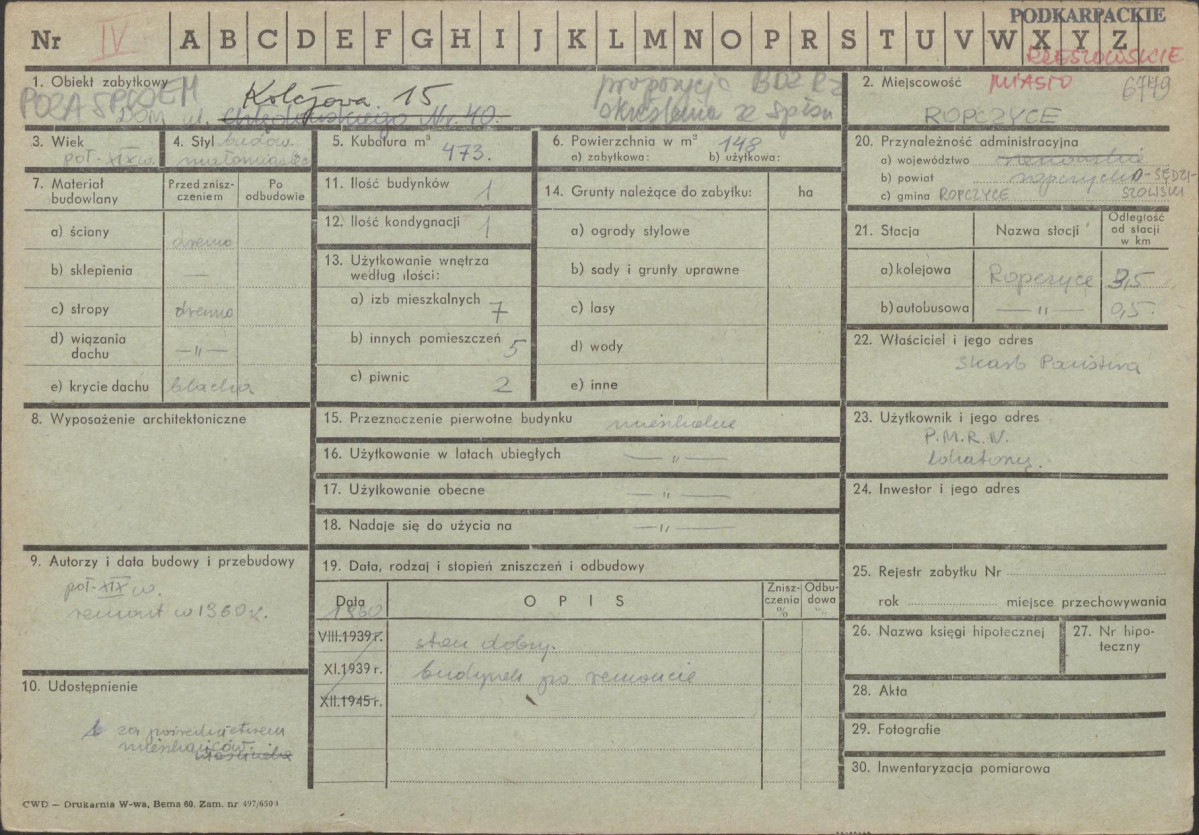 PODKARPACKIE
Nr IV A B C D E F G H I J K L M N O P R S T U V W X Y Z
RZESZOWSKIE
1. Obiekt zabytkowy
POZA SPISEM
Kolejowa 15
DOM ul. Chłędowskiego Nr. 40.
propozycja BDZ Rz
określenia ze spisu
2. Miejscowość MIASTO 6779
ROPCZYCE
3. Wiek
poł. XIX w.
4. Styl budow.
małomiasteczk
5. Kubatura m³
473.
6. Powierzchnia w m² 148
a) zabytkowa: b) użytkowa:
20. Przynależność administracyjna
a) województwo rzeszowskie
b) powiat ropczycko-SĘDZI-
SZOWSKI
c) gmina ROPCZYCE
7. Materiał
budowlany
Przed znisz-
czeniem
Po
odbudowie
a) ściany drewno
b) sklepienia —
c) stropy drewno
d) wiązania
dachu —„—
e) krycie dachu blacha
11. Ilość budynków 1
12. Ilość kondygnacji 1
13. Użytkowanie wnętrza
według ilości:
a) izb mieszkalnych 7
b) innych pomieszczeń 5
c) piwnic 2
14. Grunty należące do zabytku: ha
a) ogrody stylowe
b) sady i grunty uprawne
c) lasy
d) wody
e) inne
21. Stacja Nazwa stacji
Odległość
od stacji
w km
a) kolejowa Ropczyce 3,5
b) autobusowa —„— 0,5
22. Właściciel i jego adres
Skarb Państwa
8. Wyposażenie architektoniczne
15. Przeznaczenie pierwotne budynku mieszkalne
16. Użytkowanie w latach ubiegłych —„—
17. Użytkowanie obecne —„—
18. Nadaje się do użycia na —„—
23. Użytkownik i jego adres
P.M.R.N.
lokatorzy.
24. Inwestor i jego adres
9. Autorzy i data budowy i przebudowy
poł. XIX w.
remont w 1960 r.
19. Data, rodzaj i stopień zniszczeń i odbudowy
Data OPIS
Znisz-
czenia
%
Odbu-
dowa
%
1960
VIII.1939 r. stan dobry.
XI.1939 r. budynek po remoncie
XII.1945 r.
25. Rejestr zabytku Nr
rok miejsce przechowywania
26. Nazwa księgi hipotecznej
27. Nr hipo-
teczny
10. Udostępnienie
za pośrednictwem
mieszkańców.
właściciela
28. Akta
29. Fotografie
30. Inwentaryzacja pomiarowa
CWD — Drukarnia W-wa, Bema 60. Zam. nr 497/650